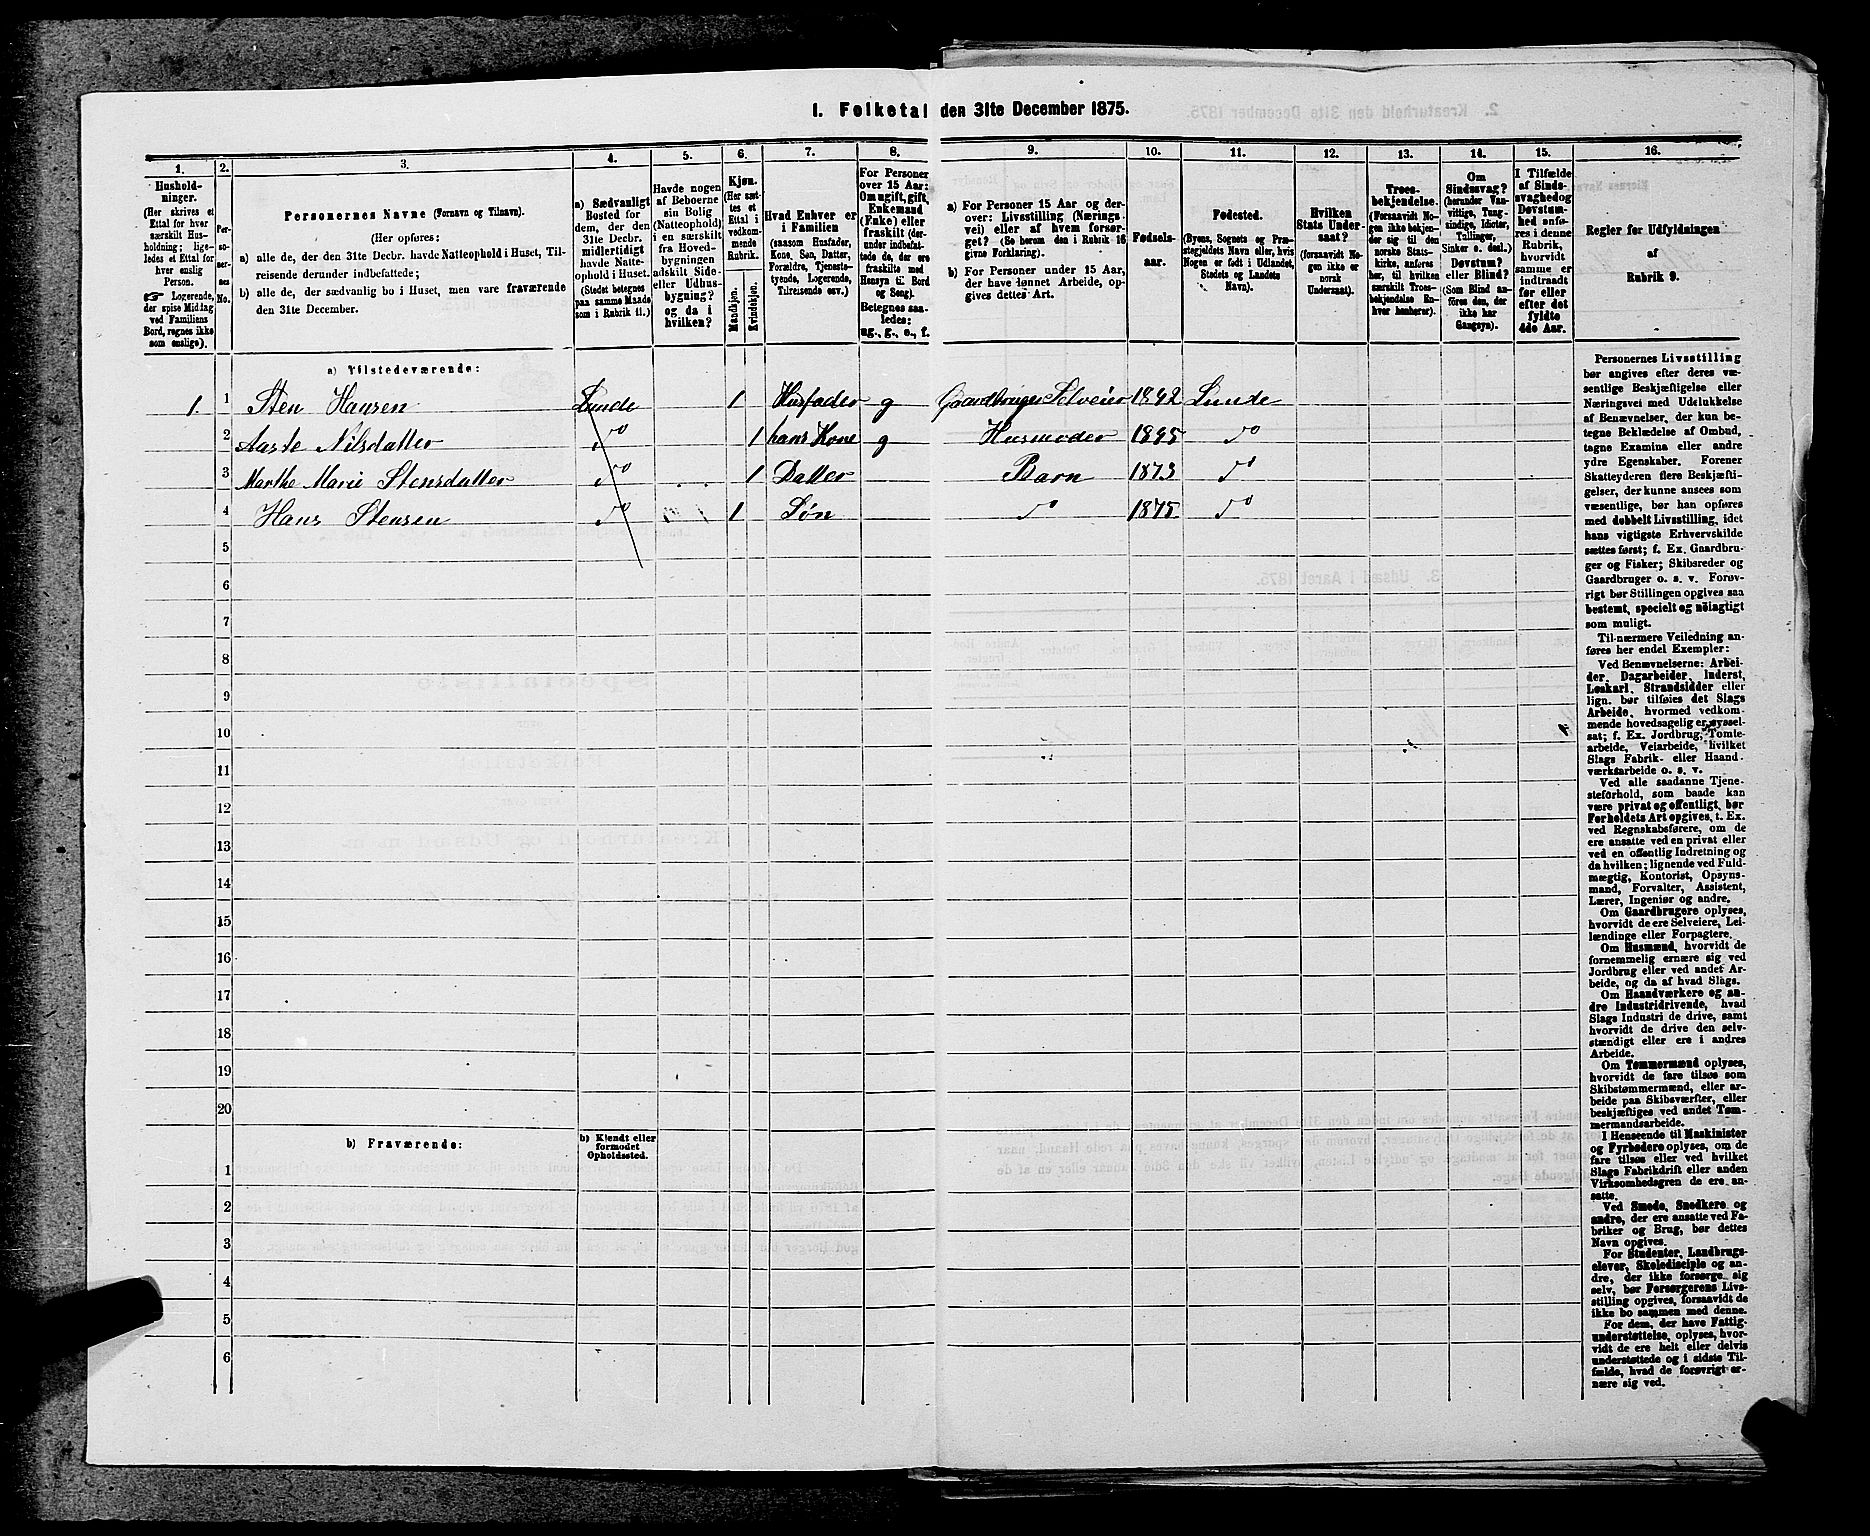 I. Folketal den 31te December 1875.
1. 2. 3. 4. 5. 6. 7. 8. 9. 10. 11. 12. 13. 14. 15. 16.
Hushold-
ninger.
(Her skrives et
Ettal for hver
særskilt Hus-
holdning; lige-
ledes et Ettal for
hver enslig
Person.
☞ Logerende,
der spise Middag
ved Familiens
Bord, regnes ikke
som enslige).
Per-
so-
ner-
nes
No.
Personernes Navne (Fornavn og Tilnavn).
(Her opføres:
a) alle de, der den 31te Decbr. havde Natteophold i Huset, Til-
reisende derunder indbefattede;
b) alle de, der sædvanlig bo i Huset, men vare fraværende
den 31te December.
a) Sædvanligt
Bosted for
dem, der den
31te Decbr.
midlertidigt
havde Natte-
ophold i Huset.
(Stedet betegnes
paa samme Maade
som i Rubrik 11.)
Havde nogen
af Beboerne
sin Bolig
(Natteophold)
i en særskilt
fra Hoved-
bygningen
adskilt Side-
eller Udhus-
bygning?
og da i
hvilken?
Kjøn.
(Her sæt-
tes et
Ettal i
vedkom-
mende
Rubrik.
Mandkjøn.
Kvindekjøn.
Hvad Enhver er
i Familien
(saasom Husfader,
Kone, Søn, Datter,
Forældre, Tjeneste-
tyende, Logerende,
Tilreisende osv.)
For Personer
over 15 Aar:
Om ugift, gift,
Enkemand
(Enke) eller
fraskilt (der-
under indbefat-
tede de, der ere
fraskilte med
Hensyn til Bord
og Seng).
Betegnes saa-
ledes:
ug., g., e., f.
a) For Personer 15 Aar og der-
over: Livsstilling (Nærings-
vei) eller af hvem forsør-
get? (Se herom den i Rubrik 16
givne Forklaring).
b) For Personer under 15 Aar,
der have lønnet Arbeide, op-
gives dettes Art.
Fødsels-
aar.
Fødested.
(Byens, Sognets og Præ-
stegjeldets Navn eller, hvis
Nogen er født i Udlandet,
Stedets og Landets
Navn).
Hvilken
Stats Under-
saat?
(forsaavidt No-
gen ikke er
norsk
Undersaat).
Troes-
bekjendelse.
(Forsaavidt No-
gen ikke bekjen-
der sig til den
norske Stats-
kirke, anføres
her, til hvilken
særskilt Troes-
bekjendelse En-
hver henhører).
Om
Sindssvag?
(herunder Van-
vittige, Tung-
sindige, Idioter,
Tullinger,
Sinker o. desl.).
Døvstum?
eller Blind?
(Som Blind an-
føres den, der
ikke har
Gangsyn).
I Tilfælde
af Sinds-
svaghed og
Døvstum-
hed anfø-
res i denne
Rubrik,
hvorvidt
samme er
indtraadt
før eller
efter det
fyldte
4de Aar.
Regler før Udfyldningen
af
Rubrik 9.
a) Tilstedeværende:
1. 1 Sten Hansen Lunde 1 Husfader g Gaardbruger Selveier 1842 Lunde
2 Aaste Nilsdatter do 1 hans Kone g Husmoder 1845 do
3 Marthe Marie Stensdatter do 1 Datter Barn 1873 do
4 Hans Stensen do 1 Søn do 1875 do
5
6
7
8
9
10
11
12
13
14
15
16
17
18
19
20
b) Fraværende:
b) Kjendt eller
formodet
Opholdssted.
1
2
3
4
5
6
Personernes Livsstilling
bør angives efter deres væ-
sentlige Beskjæftigelse eller
Næringsvei med Udelukkelse
af Benævnelser, der kun be-
tegne Beklædelse af Ombud,
tagne Examina eller andre
ydre Egenskaber. Forener
Skatteyderen flere Beskjæfti-
gelser, der kunne ansees som
væsentlige, bør han opføres
med dobbelt Livsstilling, idet
hans vigtigste Erhvervskilde
sættes først; f. Ex. Gaardbru-
ger og Fisker; Skibsreder og
Gaardbruger o. s. v. Forøv-
rigt bør Stillingen opgives saa
bestemt, specielt og nöiagtigt
som muligt.
Til nærmere Veiledning an-
føres her endel Exempler:
Ved Benævnelserne: Arbei-
der, Dagarbeider, Inderst,
Løskarl, Strandsidder eller
lign. bør tilføies det Slags
Arbeide, hvormed vedkom-
mende hovedsagelig er syssel-
sat; f. Ex. Jordbrug, Tomte-
arbeide, Veiarbeide, hvilket
Slags Fabrik- eller Haand-
værksarbeide o. s. v.
Ved alle saadanne Tjene-
steforhold, som baade kan
være privat og offentligt, bør
Forholdets Art opgives, t. Ex.
ved Regnskabsførere, om de
ere ansatte ved en privat eller
ved en offentlig Indretning og
da hvilken; lignende ved Fuld-
mægtig, Kontorist, Opsyns-
mand, Forvalter, Assistent,
Lærer, Ingeniør og andre.
Om Gaardbrugere oplyses,
hvorvidt de ere Selveiere, Lei-
lændinge eller Forpagtere.
Om Husmænd, hvorvidt de
fornemmelig ernære sig ved
Jordbrug eller ved andet Ar-
beide, og da af hvad Slags.
Om Haandværkere og an-
dre Industridrivende, hvad
Slags Industri de drive, samt
hvorvidt de drive den selv-
stændigt eller ere i andres
Arbeide.
Om Tømmermænd oplyses,
hvorvidt de fare tilsøs som
Skibstømmermænd, eller ar-
beide paa Skibsværfter, eller
beskjæftiges ved andet Tøm-
mermandsarbeide.
I Henseende til Maskinister
og Fyrbødere oplyses, om de
fare tilsøs eller ved hvilket
Slags Fabrikdrift eller anden
Virksomhedsgren de ere an-
satte.
Ved Smede, Snedkere og
andre, der ere ansatte ved Fa-
briker og Brug, bør dettes
Navn opgives.
For Studenter, Landbrugs-
elever, Skoledisciple og an-
dre, der ikke forsørge sig
selv, bør Forsørgerens Livs-
stilling opgives, forsaavidt de
ikke bo sammen med denne.
For dem, der have Fattig-
understøttelse, oplyses, hvor-
vidt de ere helt eller delvis
understøttede og i sidste Til-
fælde, hvad de forøvrigt er-
nære sig ved.